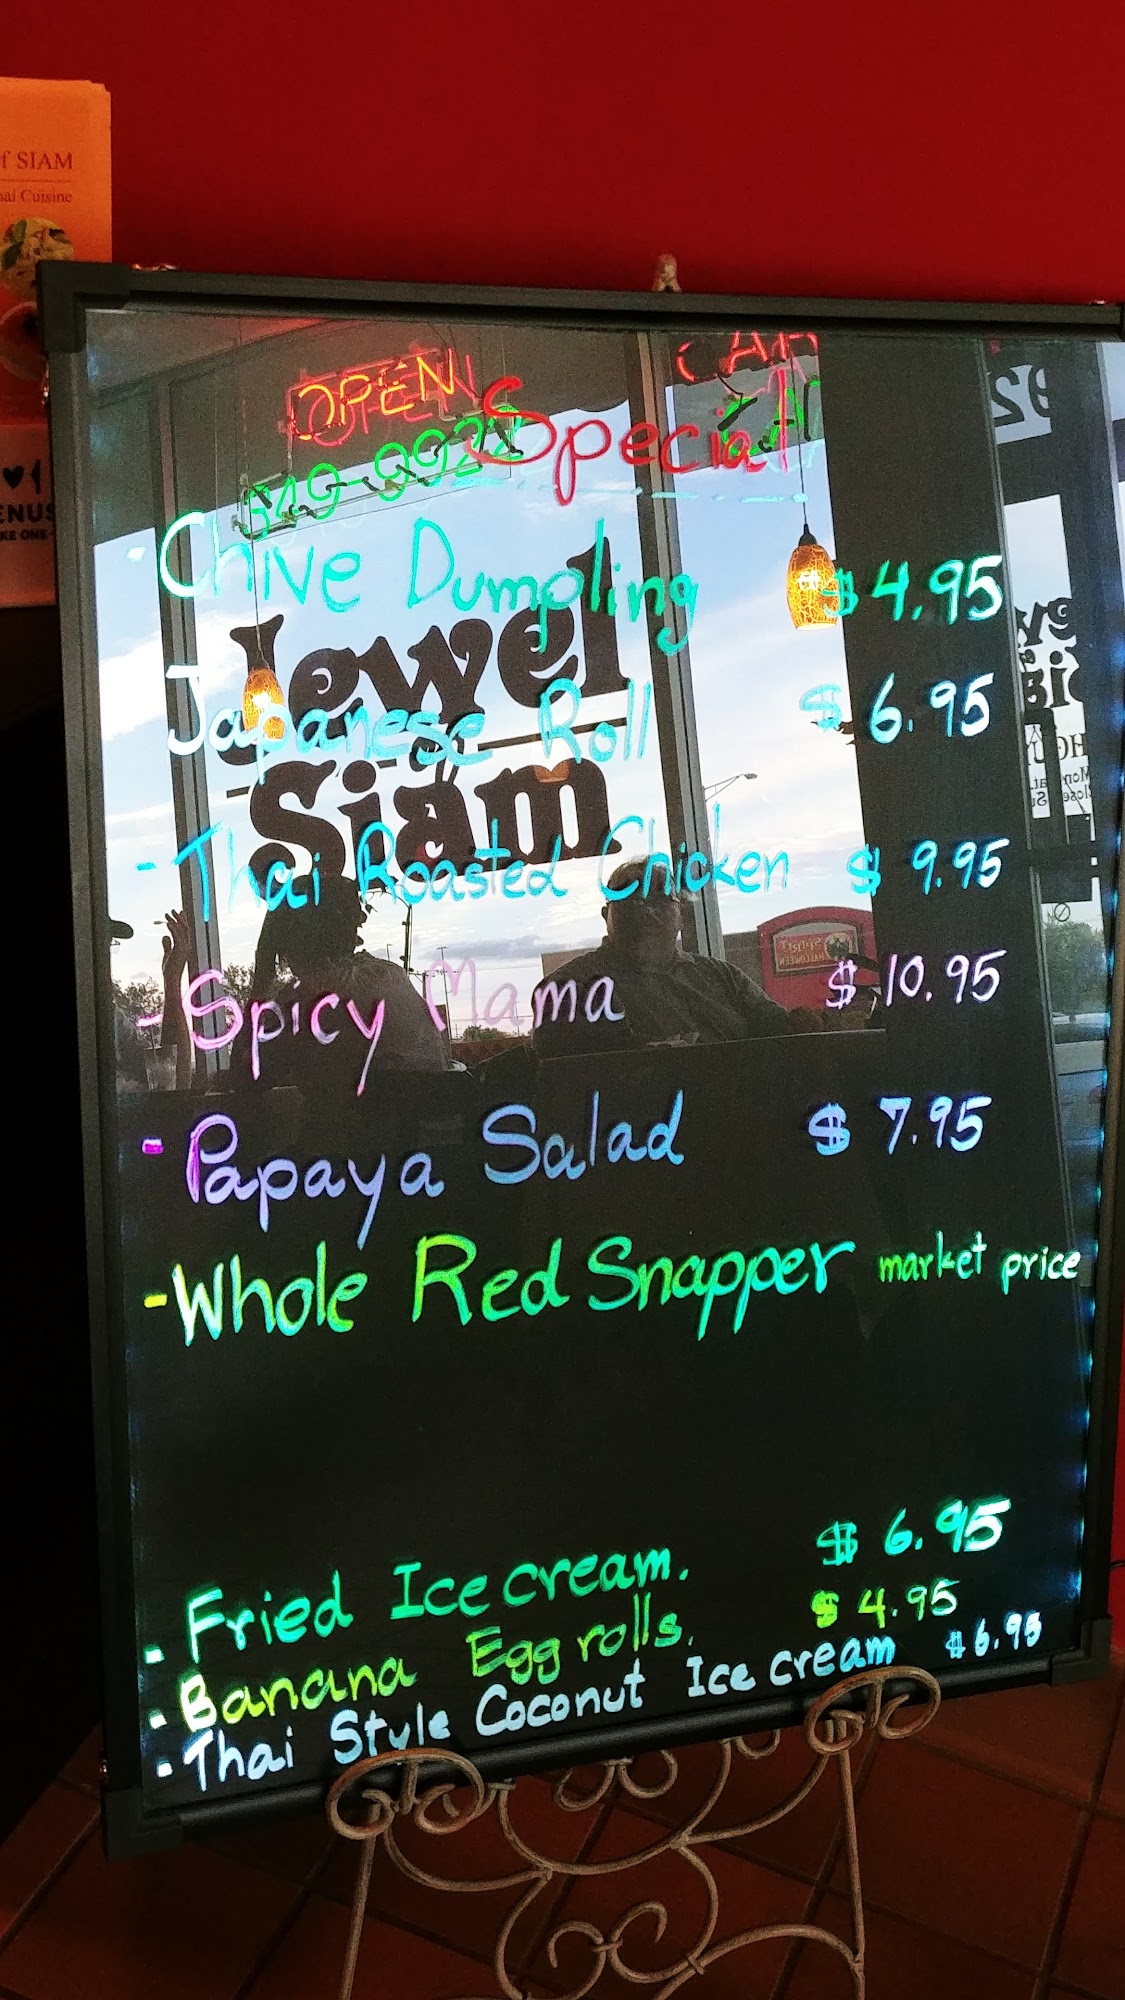 f SIAM
hai Cuisine
OPEN
Special
349-9922
- Chive Dumpling $ 4.95
Jewel
Japanese Roll $ 6.95
Siam
- Thai Roasted Chicken $ 9.95
- Spicy Mama $ 10.95
- Papaya Salad $ 7.95
- Whole Red Snapper market price
- Fried Ice cream. $ 6.95
- Banana Egg rolls. $ 4.95
- Thai Style Coconut Ice cream $ 6.95
ENUS
KE ONE-
SPIRIT
HALLOWEEN